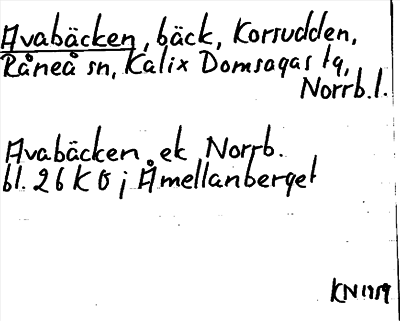 Avabäcken, bäck, Korsudden,
Råneå sn, Kalix Domsagas tg,
Norrb.l.
Avabäcken ek Norrb.
bl. 26 K Ö j Åmellanberget
KN 1959